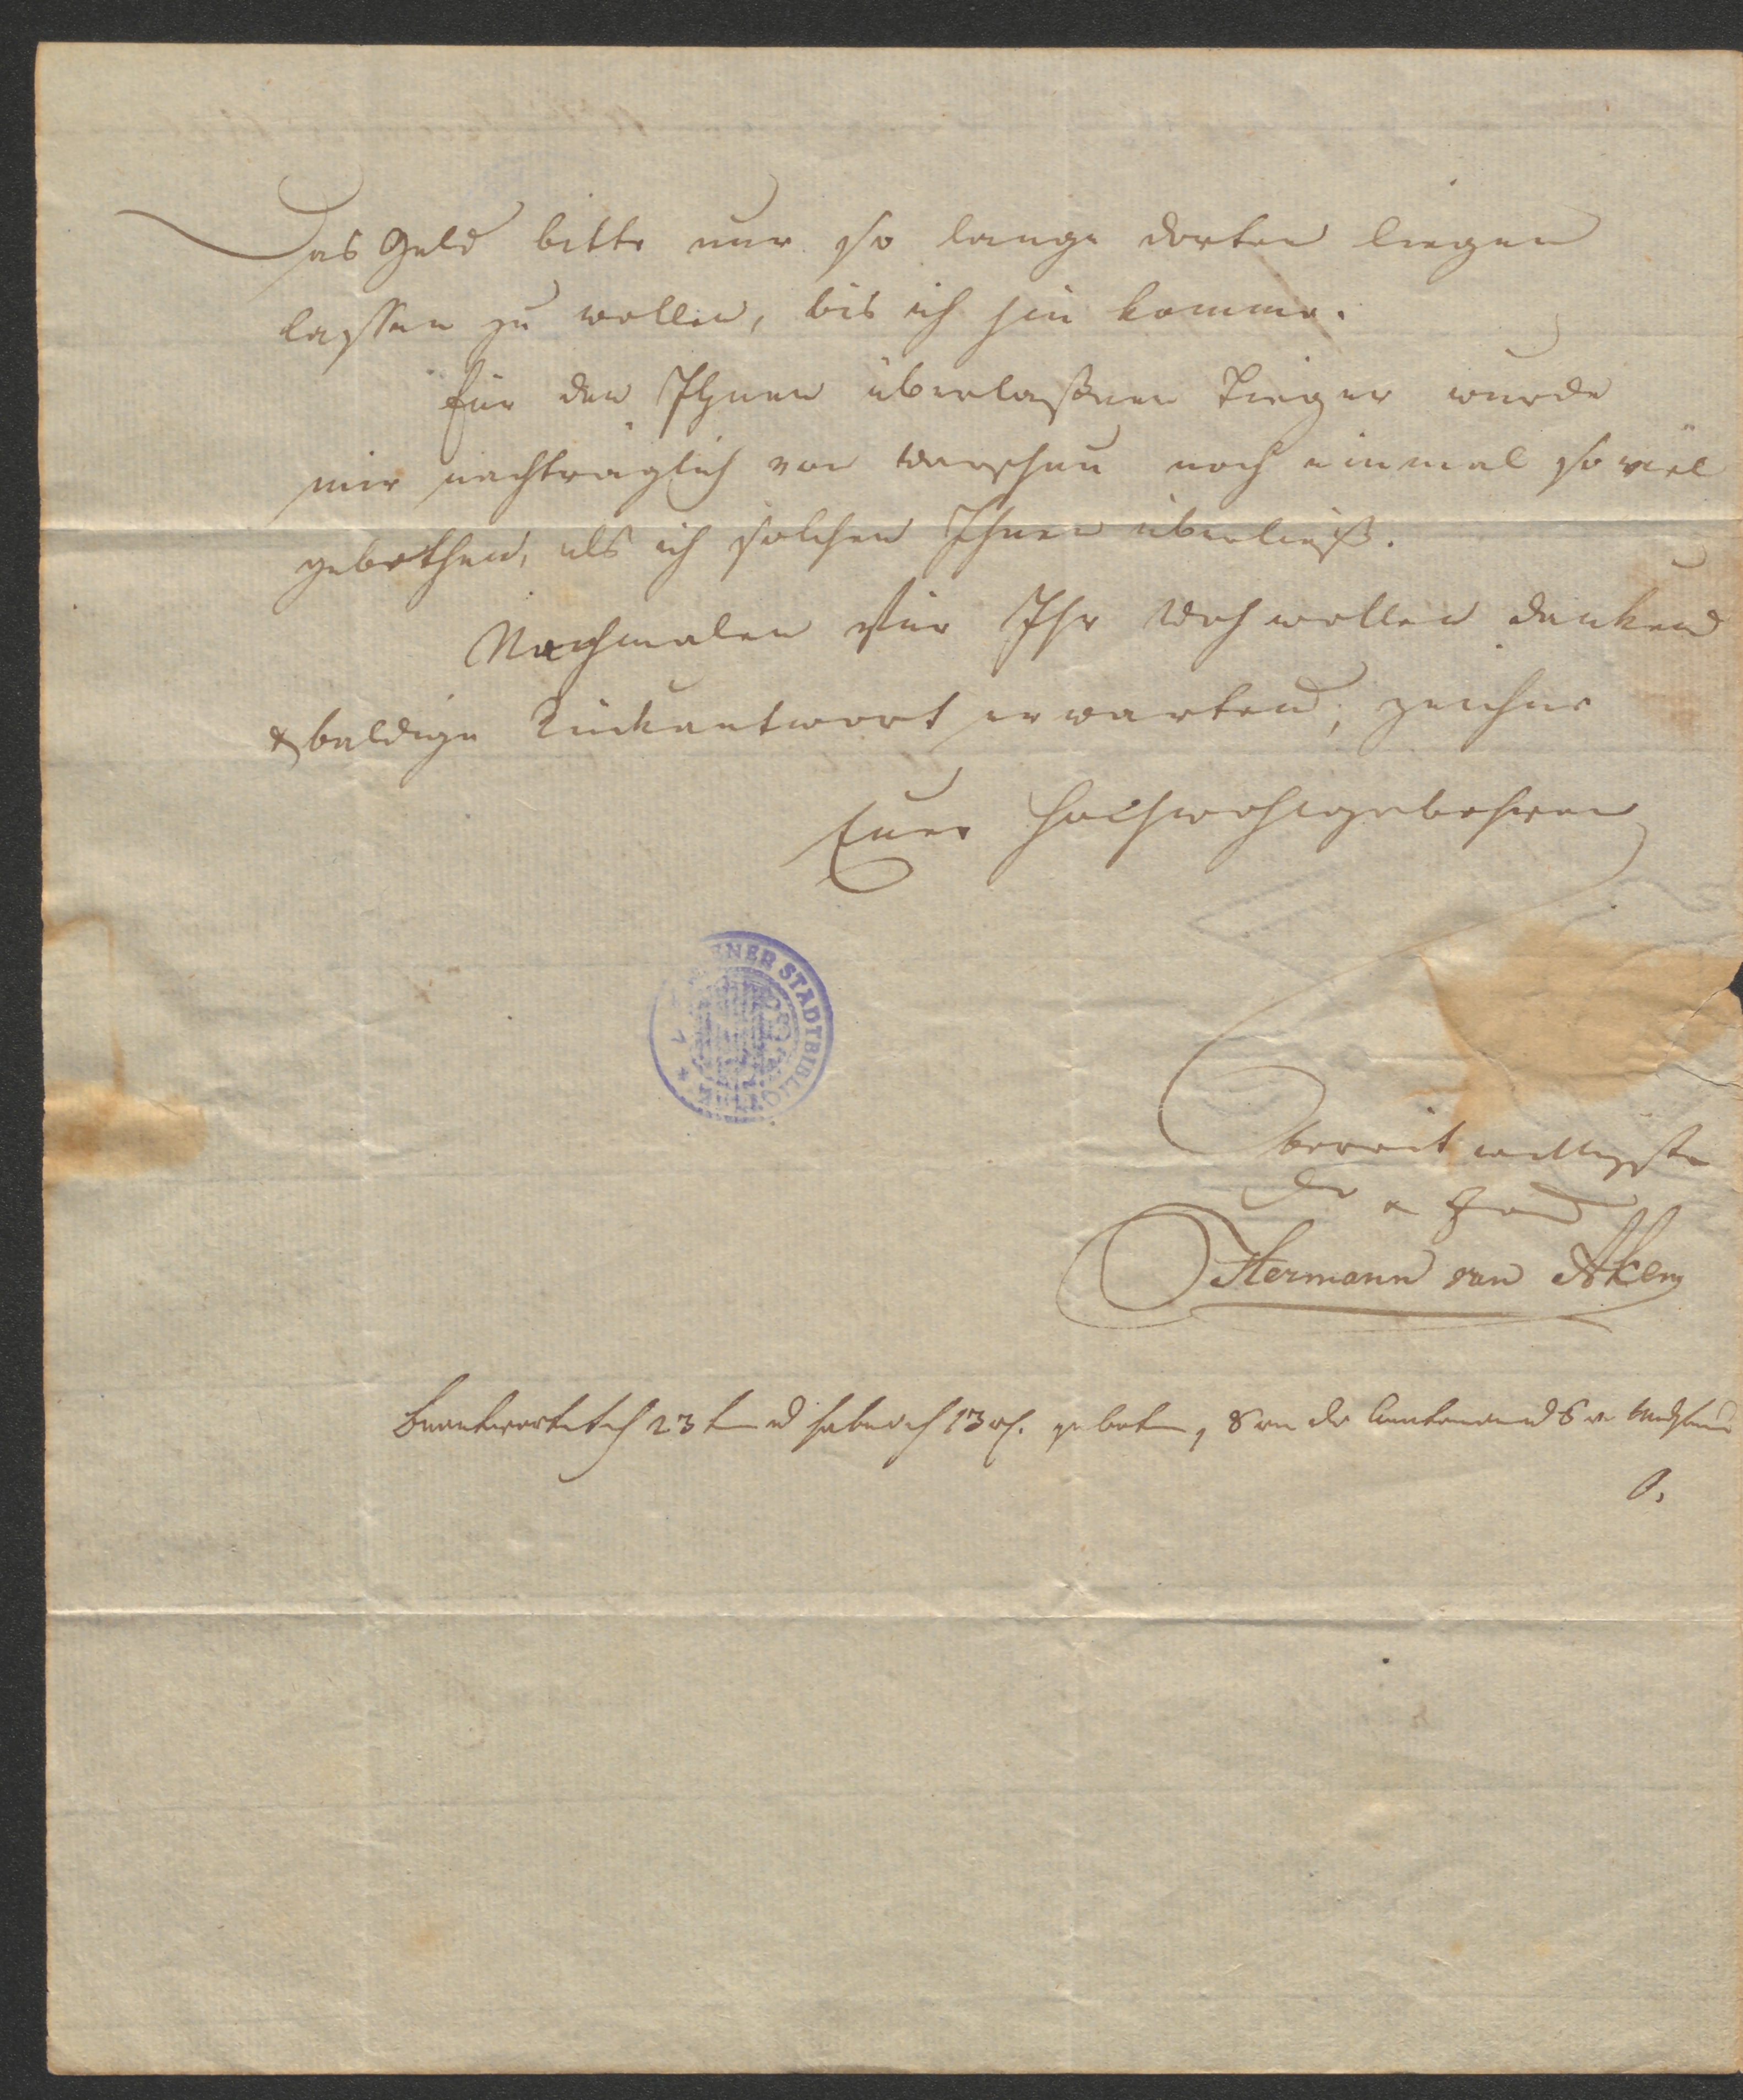 Das Geld bitte nur so lange dorten liegen
lassen zu wollen, bis ich hin komme.
für den Ihnen überlaßnen Tieger wurde
mir nachträglich von Warschau noch einmal so viel
gebothen, als ich solchen Ihnen überließ.
Nochmalen für Ihr Wohlwollen dankend
& baldige Rückantwort erwartend, zeichne
Euer Hochwohlgebohren
bereitwilligster
Hermann van Aken
Beantwortet d 23 habe ich 13 geboten, 8 von der 8
O.
ENER STADTBIBLIOTHEK